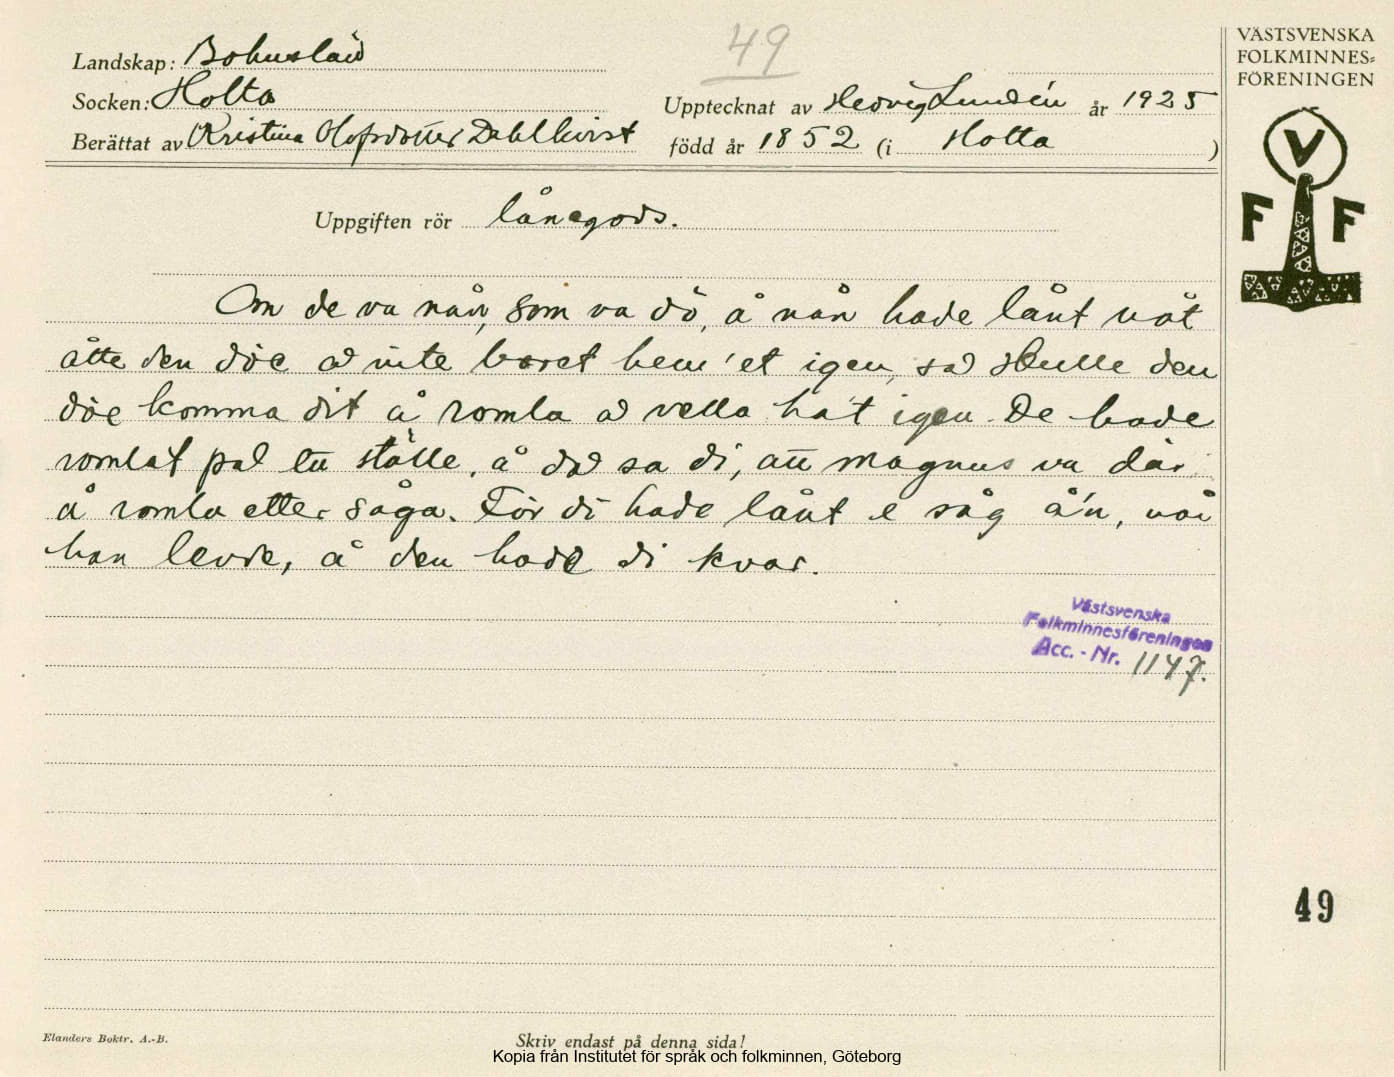 49
VÄSTSVENSKA
FOLKMINNES=
FÖRENINGEN
Landskap: Bohuslän
Socken: Holta
Upptecknat av Hedvig Lundén år 1925
Berättat av Kristina Olofsdotter Dahlkvist född år 1852 (i Holta )
V
F F
Uppgiften rör lånegods.
Om de va nån, som va dö, å nån hade lånt nöt
åtte den döe å inte boret hem 'et igen, så skulle den
döe komma dit å romla å vella ha't igen. De hade
romlat på ett ställe, å då sa di, att Magnus va där
å romla etter såga. För di hade lånt e såg å'n, när
han levde, å den hade di kvar.
Västsvenska
Folkminnesföreningen
Acc. - Nr. 1147.
49
Elanders Boktr. A.-B.
Skriv endast på denna sida!
Kopia från Institutet för språk och folkminnen, Göteborg